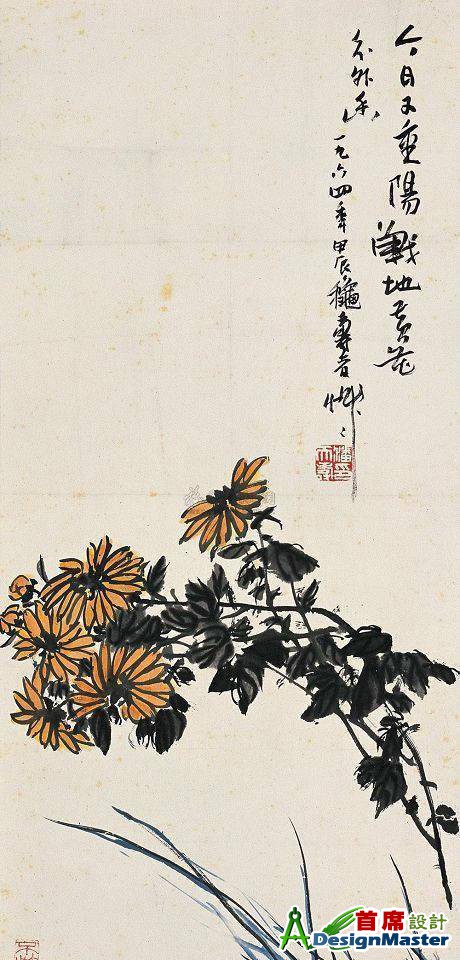 今日又重陽戰地黃花
分外香 一九六四年甲辰龝壽者
潘天壽印
首席設計
DesignMaster